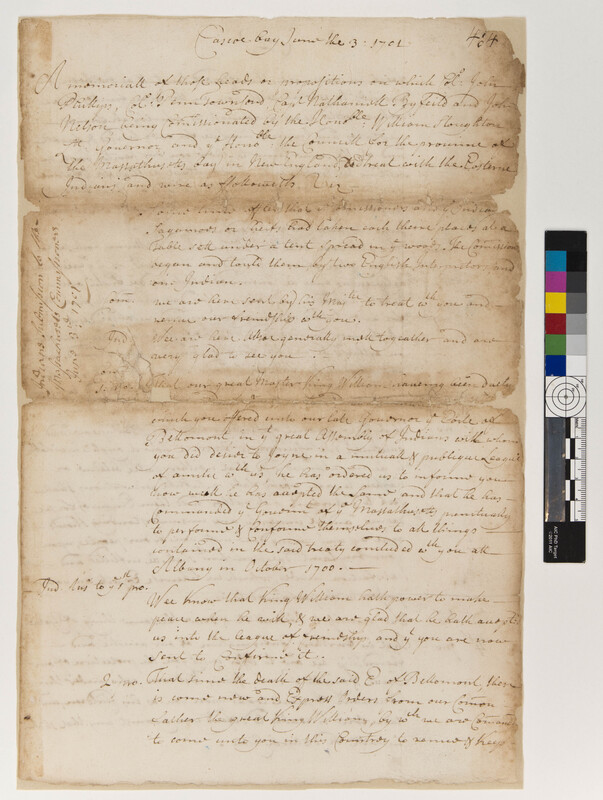 Cascoe bay June the 3: 1701
A memoriall of those heads or propositions on which Col. John
Phillips, Col. Penn Townsend, Capt Nathaniell Byfeild and John
Nelson being Comissionated by the Honoble William Stoughton
Lt Governor and ye Honoble the Councill for the province of
The Massathusetts bay in New England, to treat with the Easterne
Indians, and were as followeth Viz
Some time after that ye Comissioners and ye Indian
Sagamores or heads had taken each there places at a
table sett under a tent spread in ye woods. The Comissioners
began and tould them by two English Interpretors and
one Indian.
Com. we are here sent by his Matie to treat wth you and
renue our freindship wth you.
Ind Wee are here in generall mett togeather and are
very glad to see you
Com
1: mo. That our great Master King William haveing been duely
which you offered unto our late Governor ye Earle of
Bellomont in ye great Assembly of Indians with whom
you did desier to joyne in a mutuall & publique League
of amitie wth us he has ordered us to informe you
how well he has accepted the same and that he has
Commanded ye Governmt of ye Massathusetts punctually
to performe & conforme themselves to all things
contained in the said treaty concluded wth you att
Albany in October 1700.
Ind Ans to ye 1st mo. Wee know that King William hath power to make
peace when he will, & we are glad that he hath accepted
us into the league of freindship and yt you are now
sent to Confirme it.
2: mo. That since the death of the said E. of Bellomont, there
is come new and Express Orders from our Comon
father the great King William, by wch we are Comanded
to come unto you in this Countrey to renue & keep
Indians Submission to ye
Massachusets Commissioners
June 3d 1701.